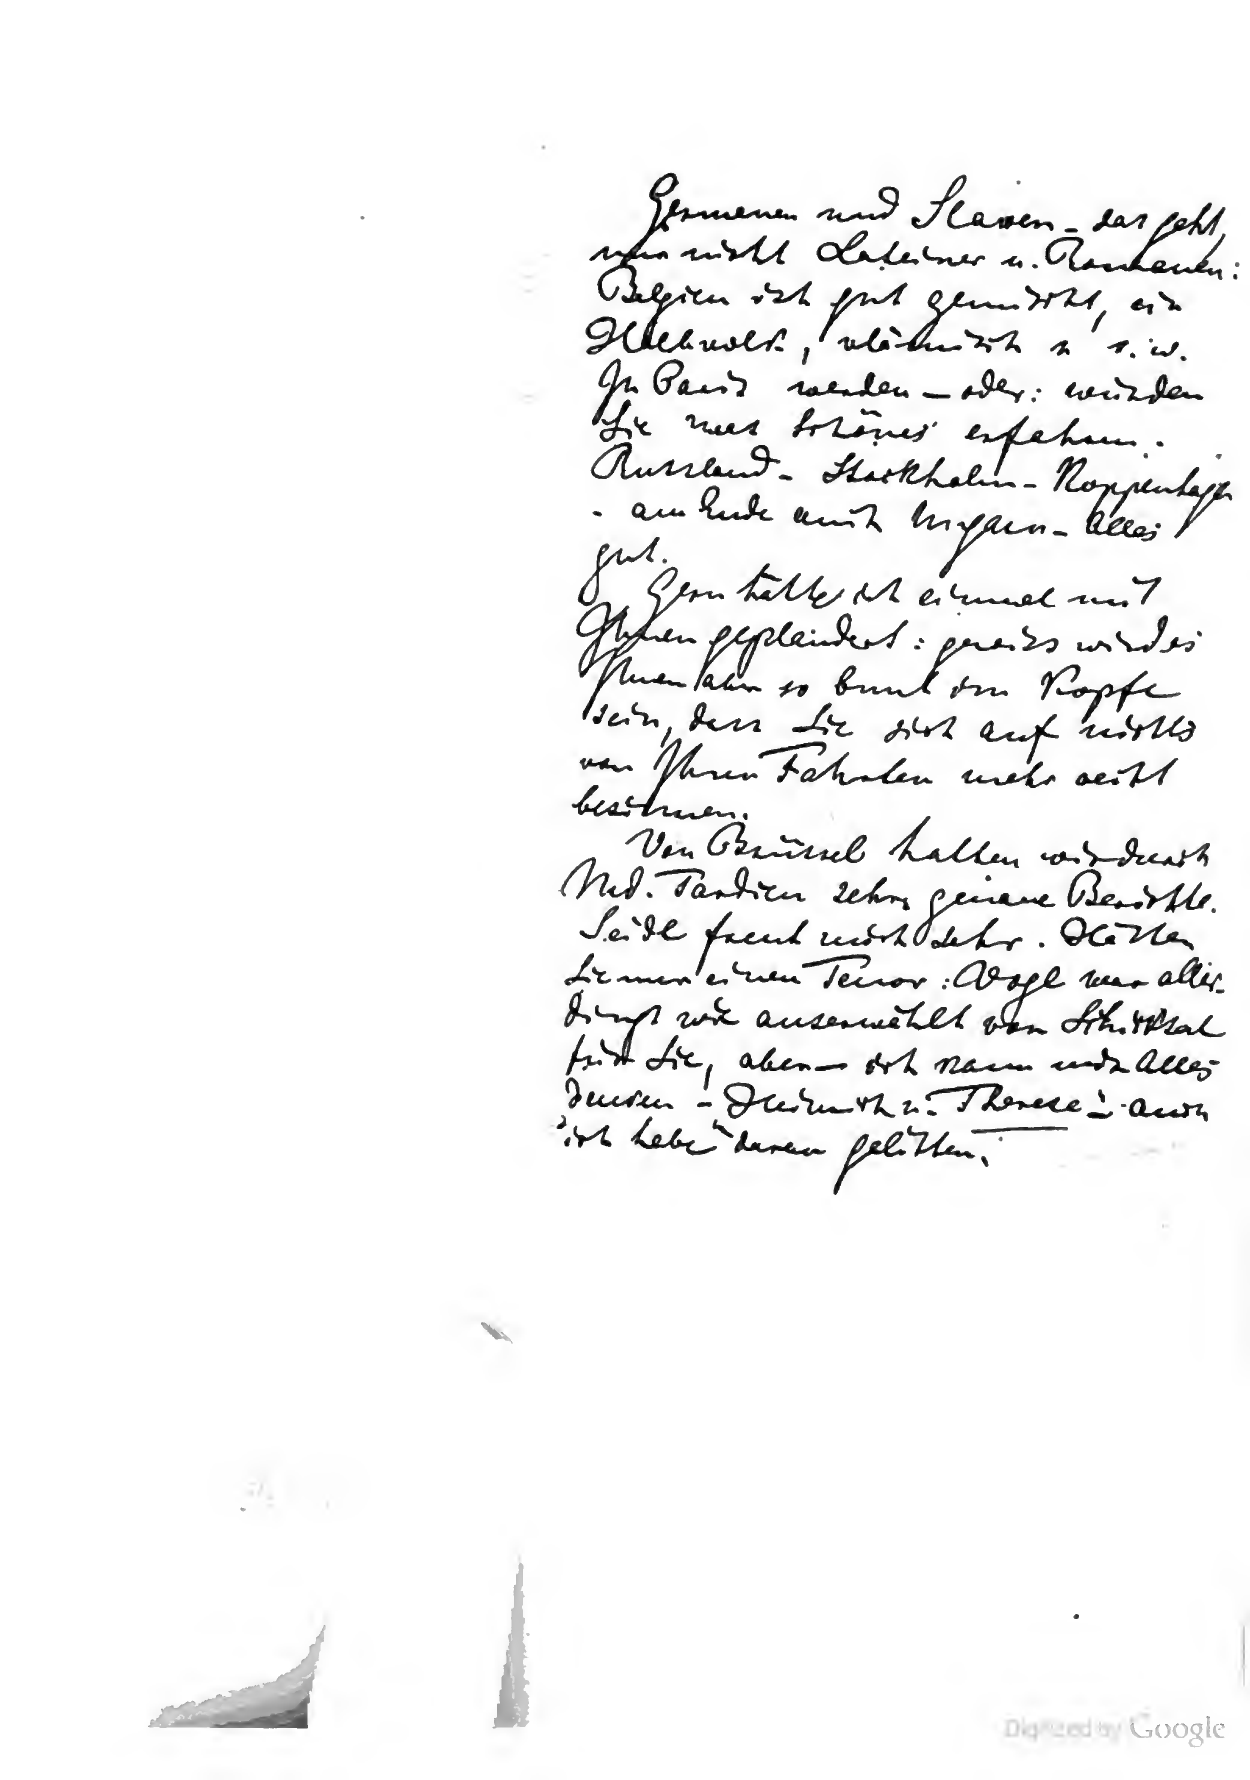 Germanen und Slaven - das geht,
nur nicht Lateiner u. Romanen:
Belgien ist gut gemischt, ein
Halbvolk, vlämisch u s. w.
In Paris werden - oder: würden
Sie was Schönes erfahren.
Russland - Stockholm - Koppenhagen
- am Ende auch Ungarn - Alles
gut.
Gern hätte ich einmal mit
Ihnen geplaudert: gewiss wird es
Ihnen aber so bunt im Kopfe
sein, dass Sie sich auf nichts
von Ihren Fahrten mehr recht
besinnen.
Von Brüssel hatten wir durch
Md. Tardieu sehr genaue Berichte.
Seidl freut mich sehr. Hätten
Sie nur einen Tenor: Vogl war aller-
dings wie auserwählt vom Schicksal
für Sie, aber - ich kann mir Alles
denken - Heinrich u. Therese! - auch
ich habe daran gelitten.
Digitized by Google